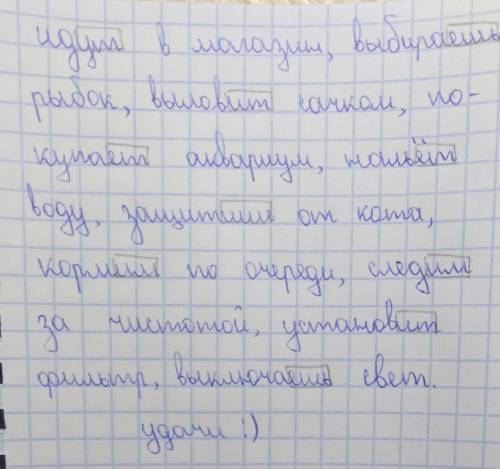 идут в магазин, выбираешь
рыбок, выловит сачком, по-
купает аквариум, нальёт
воду, защитишь от кота,
кормим по очереди, следим
за чистотой, установит
фильтр, выключаешь свет.
удачи :)